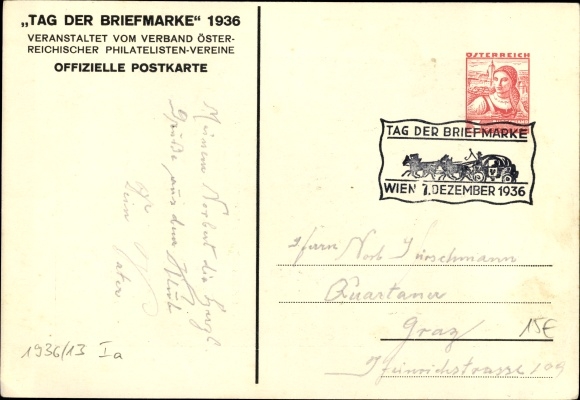 „TAG DER BRIEFMARKE“ 1936
VERANSTALTET VOM VERBAND ÖSTER-
REICHISCHER PHILATELISTEN-VEREINE
OFFIZIELLE POSTKARTE
Meinem Norbert die herzl.
Grüße aus dem Klub
Dein
Vater
1936/13 Ia
ÖSTERREICH
TAG DER BRIEFMARKE
WIEN 7. DEZEMBER 1936
Herrn Norb.
Quartaner
Graz
15€
Heinrichstrasse 109